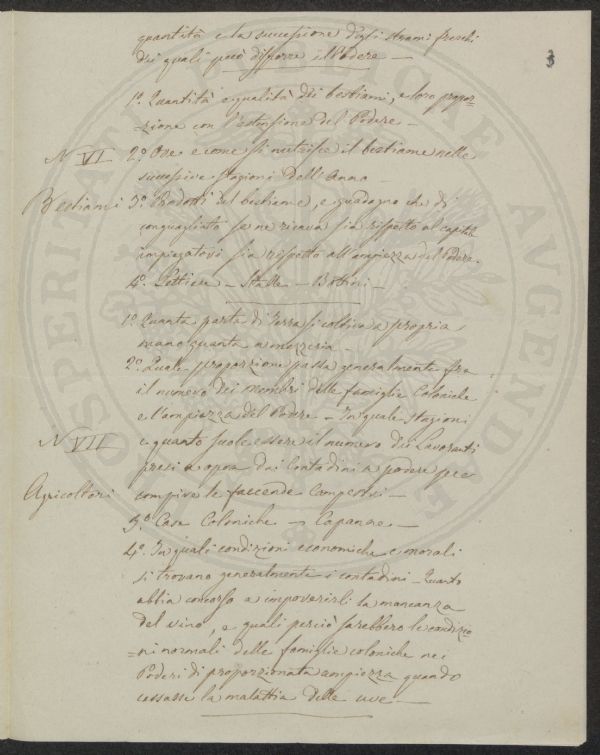 3
quantità e la successione degli strami freschi
dei quali può disporre il Podere —
1.º Quantità e qualità dei bestiami, e loro propor=
zione con l'estensione del Podere —
N VI 2.º Ove e come si nutrisce il bestiame nelle
successive stagioni dell'Anno —
Bestiami 3.º Prodotti del bestiame, e guadagno che di
conguagliato se ne ricava sia rispetto al capitale
impiegatovi sia rispetto all'ampiezza del Podere.
4.º Lettiere — Stalle — Bottini —
1.º Quanta parte di Terra si coltiva a propria
mano quanta a mezzeria —
2.º Quale proporzione passa generalmente fra
il numero dei membri delle famiglie Coloniche
e l'ampiezza del Podere — In quale stagioni
N VII e quanto suole essere il numero dei Lavoranti
presi a opra dai Contadini a podere per
Agricoltori compire le faccende Campestri —
3.º Case Coloniche — Capanne —
4.º In quali condizioni economiche e morali
si trovano generalmente i contadini — Quanto
abbia concorso a impoverirli la mancanza
del vino, e quali perciò sarebbero le condizio
=ni normali delle famiglie coloniche nei
Poderi di proporzionata ampiezza quando
cessasse la malattia delle uve —
PROSPERITATI PUBLICAE AUGENDAE